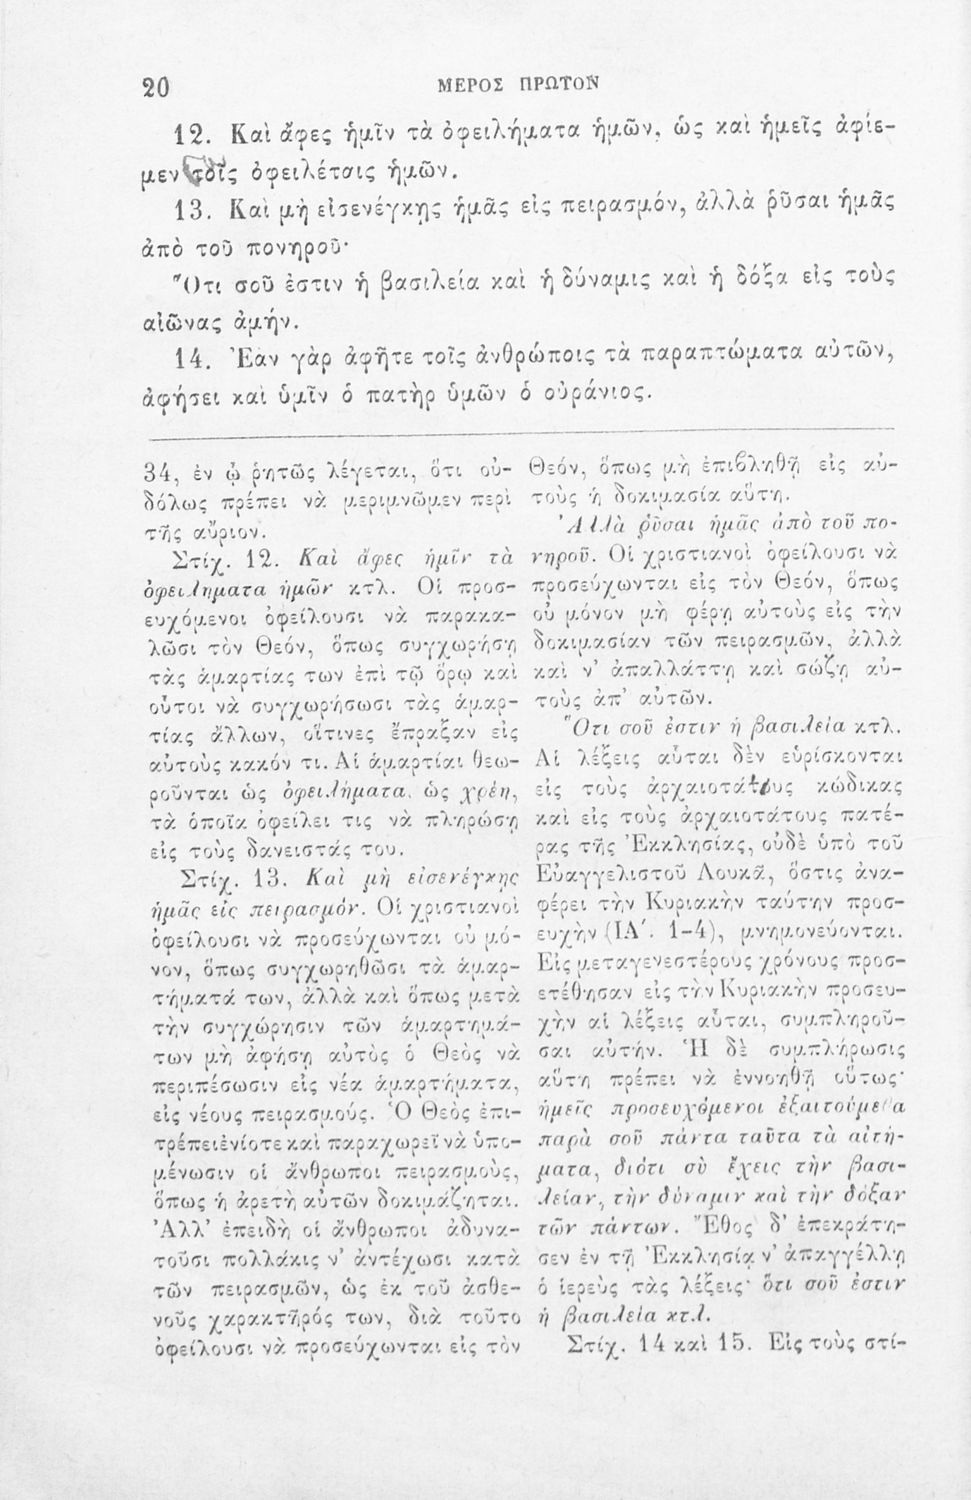 20 ΜΕΡΟΣ ΠΡΩΤΟΝ
12. Καὶ ἄφες ἡμῖν τὰ ὀφειλήματα ἡμῶν, ὡς καὶ ἡμεῖς ἀφίε-
μεν τοῖς ὀφειλέταις ἡμῶν.
13. Καὶ μὴ εἰσενέγκῃς ἡμᾶς εἰς πειρασμόν, ἀλλὰ ῥῦσαι ἡμᾶς
ἀπὸ τοῦ πονηροῦ·
Ὅτι σοῦ ἐστιν ἡ βασιλεία καὶ ἡ δύναμις καὶ ἡ δόξα εἰς τοὺς
αἰῶνας ἀμήν.
14. Ἐὰν γὰρ ἀφῆτε τοῖς ἀνθρώποις τὰ παραπτώματα αὐτῶν,
ἀφήσει καὶ ὑμῖν ὁ πατὴρ ὑμῶν ὁ οὐράνιος.
34, ἐν ᾧ ῥητῶς λέγεται, ὅτι οὐ-
δόλως πρέπει νὰ μεριμνῶμεν περὶ
τῆς αὔριον.
Στίχ. 12. Καὶ ἄφες ἡμῖν τὰ
ὀφειλήματα ἡμῶν κτλ. Οἱ προσ-
ευχόμενοι ὀφείλουσι νὰ παρακα-
λῶσι τὸν Θεόν, ὅπως συγχωρήσῃ
τὰς ἁμαρτίας των ἐπὶ τῷ ὅρῳ καὶ
οὗτοι νὰ συγχωρήσωσι τὰς ἁμαρ-
τίας ἄλλων, οἵτινες ἔπραξαν εἰς
αὐτοὺς κακόν τι. Αἱ ἁμαρτίαι θεω-
ροῦνται ὡς ὀφειλήματα, ὡς χρέη,
τὰ ὁποῖα ὀφείλει τις νὰ πληρώσῃ
εἰς τοὺς δανειστάς του.
Στίχ. 13. Καὶ μὴ εἰσενέγκῃς
ἡμᾶς εἰς πειρασμόν. Οἱ χριστιανοὶ
ὀφείλουσι νὰ προσεύχωνται οὐ μό-
νον, ὅπως συγχωρηθῶσι τὰ ἁμαρ-
τήματά των, ἀλλὰ καὶ ὅπως μετὰ
τὴν συγχώρησιν τῶν ἁμαρτημά-
των μὴ ἀφήσῃ αὐτὸς ὁ Θεὸς νὰ
περιπέσωσιν εἰς νέα ἁμαρτήματα,
εἰς νέους πειρασμούς. Ὁ Θεὸς ἐπι-
τρέπει ἐνίοτε καὶ παραχωρεῖ νὰ ὑπο-
μένωσιν οἱ ἄνθρωποι πειρασμοὺς,
ὅπως ἡ ἀρετὴ αὐτῶν δοκιμάζηται.
Ἀλλ’ ἐπειδὴ οἱ ἄνθρωποι ἀδυνα-
τοῦσι πολλάκις ν’ ἀντέχωσι κατὰ
τῶν πειρασμῶν, ὡς ἐκ τοῦ ἀσθε-
νοῦς χαρακτῆρός των, διὰ τοῦτο
ὀφείλουσι νὰ προσεύχωνται εἰς τὸν
Θεόν, ὅπως μὴ ἐπιβληθῇ εἰς αὐ-
τοὺς ἡ δοκιμασία αὕτη.
Ἀλλὰ ῥῦσαι ἡμᾶς ἀπὸ τοῦ πο-
νηροῦ. Οἱ χριστιανοὶ ὀφείλουσι νὰ
προσεύχωνται εἰς τὸν Θεόν, ὅπως
οὐ μόνον μὴ φέρῃ αὐτοὺς εἰς τὴν
δοκιμασίαν τῶν πειρασμῶν, ἀλλὰ
καὶ ν’ ἀπαλλάττῃ καὶ σώζῃ αὐ-
τοὺς ἀπ’ αὐτῶν.
Ὅτι σοῦ ἐστιν ἡ βασιλεία κτλ.
Αἱ λέξεις αὗται δὲν εὑρίσκονται
εἰς τοὺς ἀρχαιοτάτους κώδικας
καὶ εἰς τοὺς ἀρχαιοτάτους πατέ-
ρας τῆς Ἐκκλησίας, οὐδὲ ὑπὸ τοῦ
Εὐαγγελιστοῦ Λουκᾶ, ὅστις ἀνα-
φέρει τὴν Κυριακὴν ταύτην προσ-
ευχὴν (ΙΑ΄. 1-4), μνημονεύονται.
Εἰς μεταγενεστέρους χρόνους προσ-
ετέθησαν εἰς τὴν Κυριακὴν προσευ-
χὴν αἱ λέξεις αὗται, συμπληροῦ-
σαι αὐτήν. Ἡ δὲ συμπλήρωσις
αὕτη πρέπει νὰ ἐννοηθῇ οὕτως·
ἡμεῖς προσευχόμενοι ἐξαιτούμεθα
παρὰ σοῦ πάντα ταῦτα τὰ αἰτή-
ματα, διότι σὺ ἔχεις τὴν βασι-
λείαν, τὴν δύναμιν καὶ τὴν δόξαν
τῶν πάντων. Ἔθος δ’ ἐπεκράτη-
σεν ἐν τῇ Ἐκκλησίᾳ ν’ ἀπαγγέλλῃ
ὁ ἱερεὺς τὰς λέξεις· ὅτι σοῦ ἐστιν
ἡ βασιλεία κτλ.
Στίχ. 14 καὶ 15. Εἰς τοὺς στί-